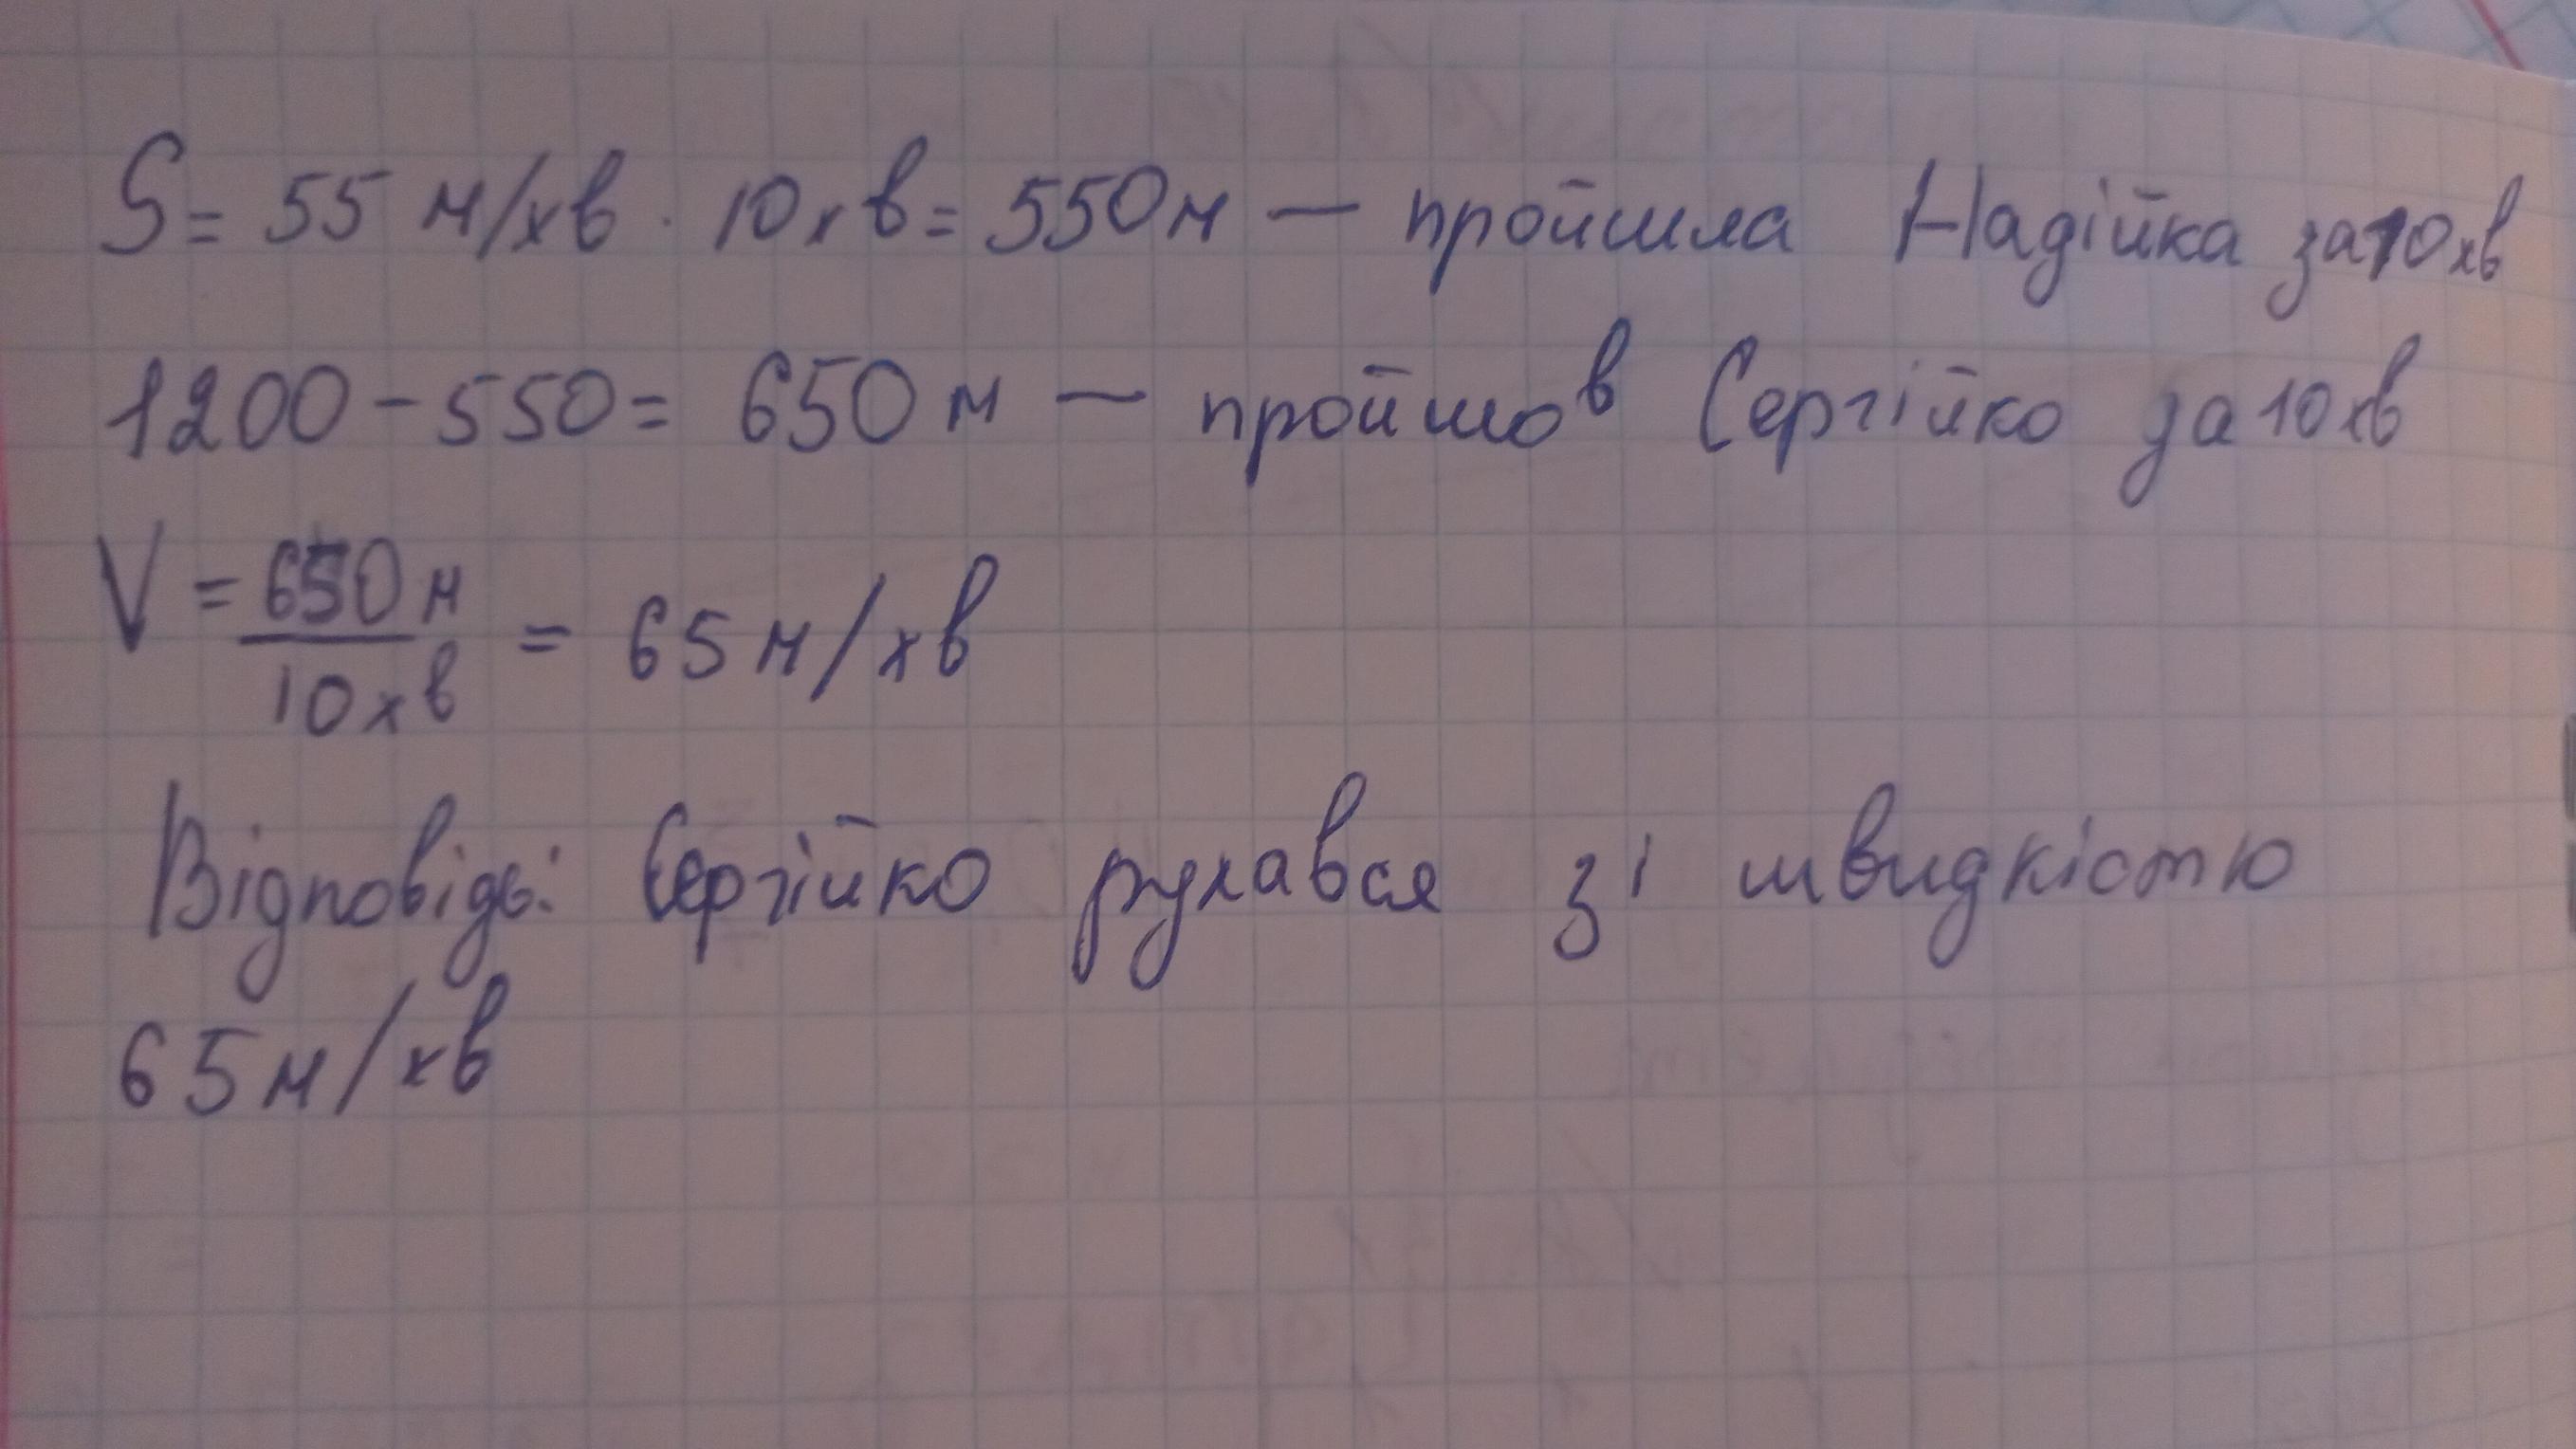 S = 55 м/хв · 10хв = 550м — пройшла Надійка за 10хв
1200 - 550 = 650 м — пройшов Сергійко за 10 хв
V = 650 м / 10 хв = 65 м/хв
Відповідь: Сергійко рухався зі швидкістю
65 м/хв